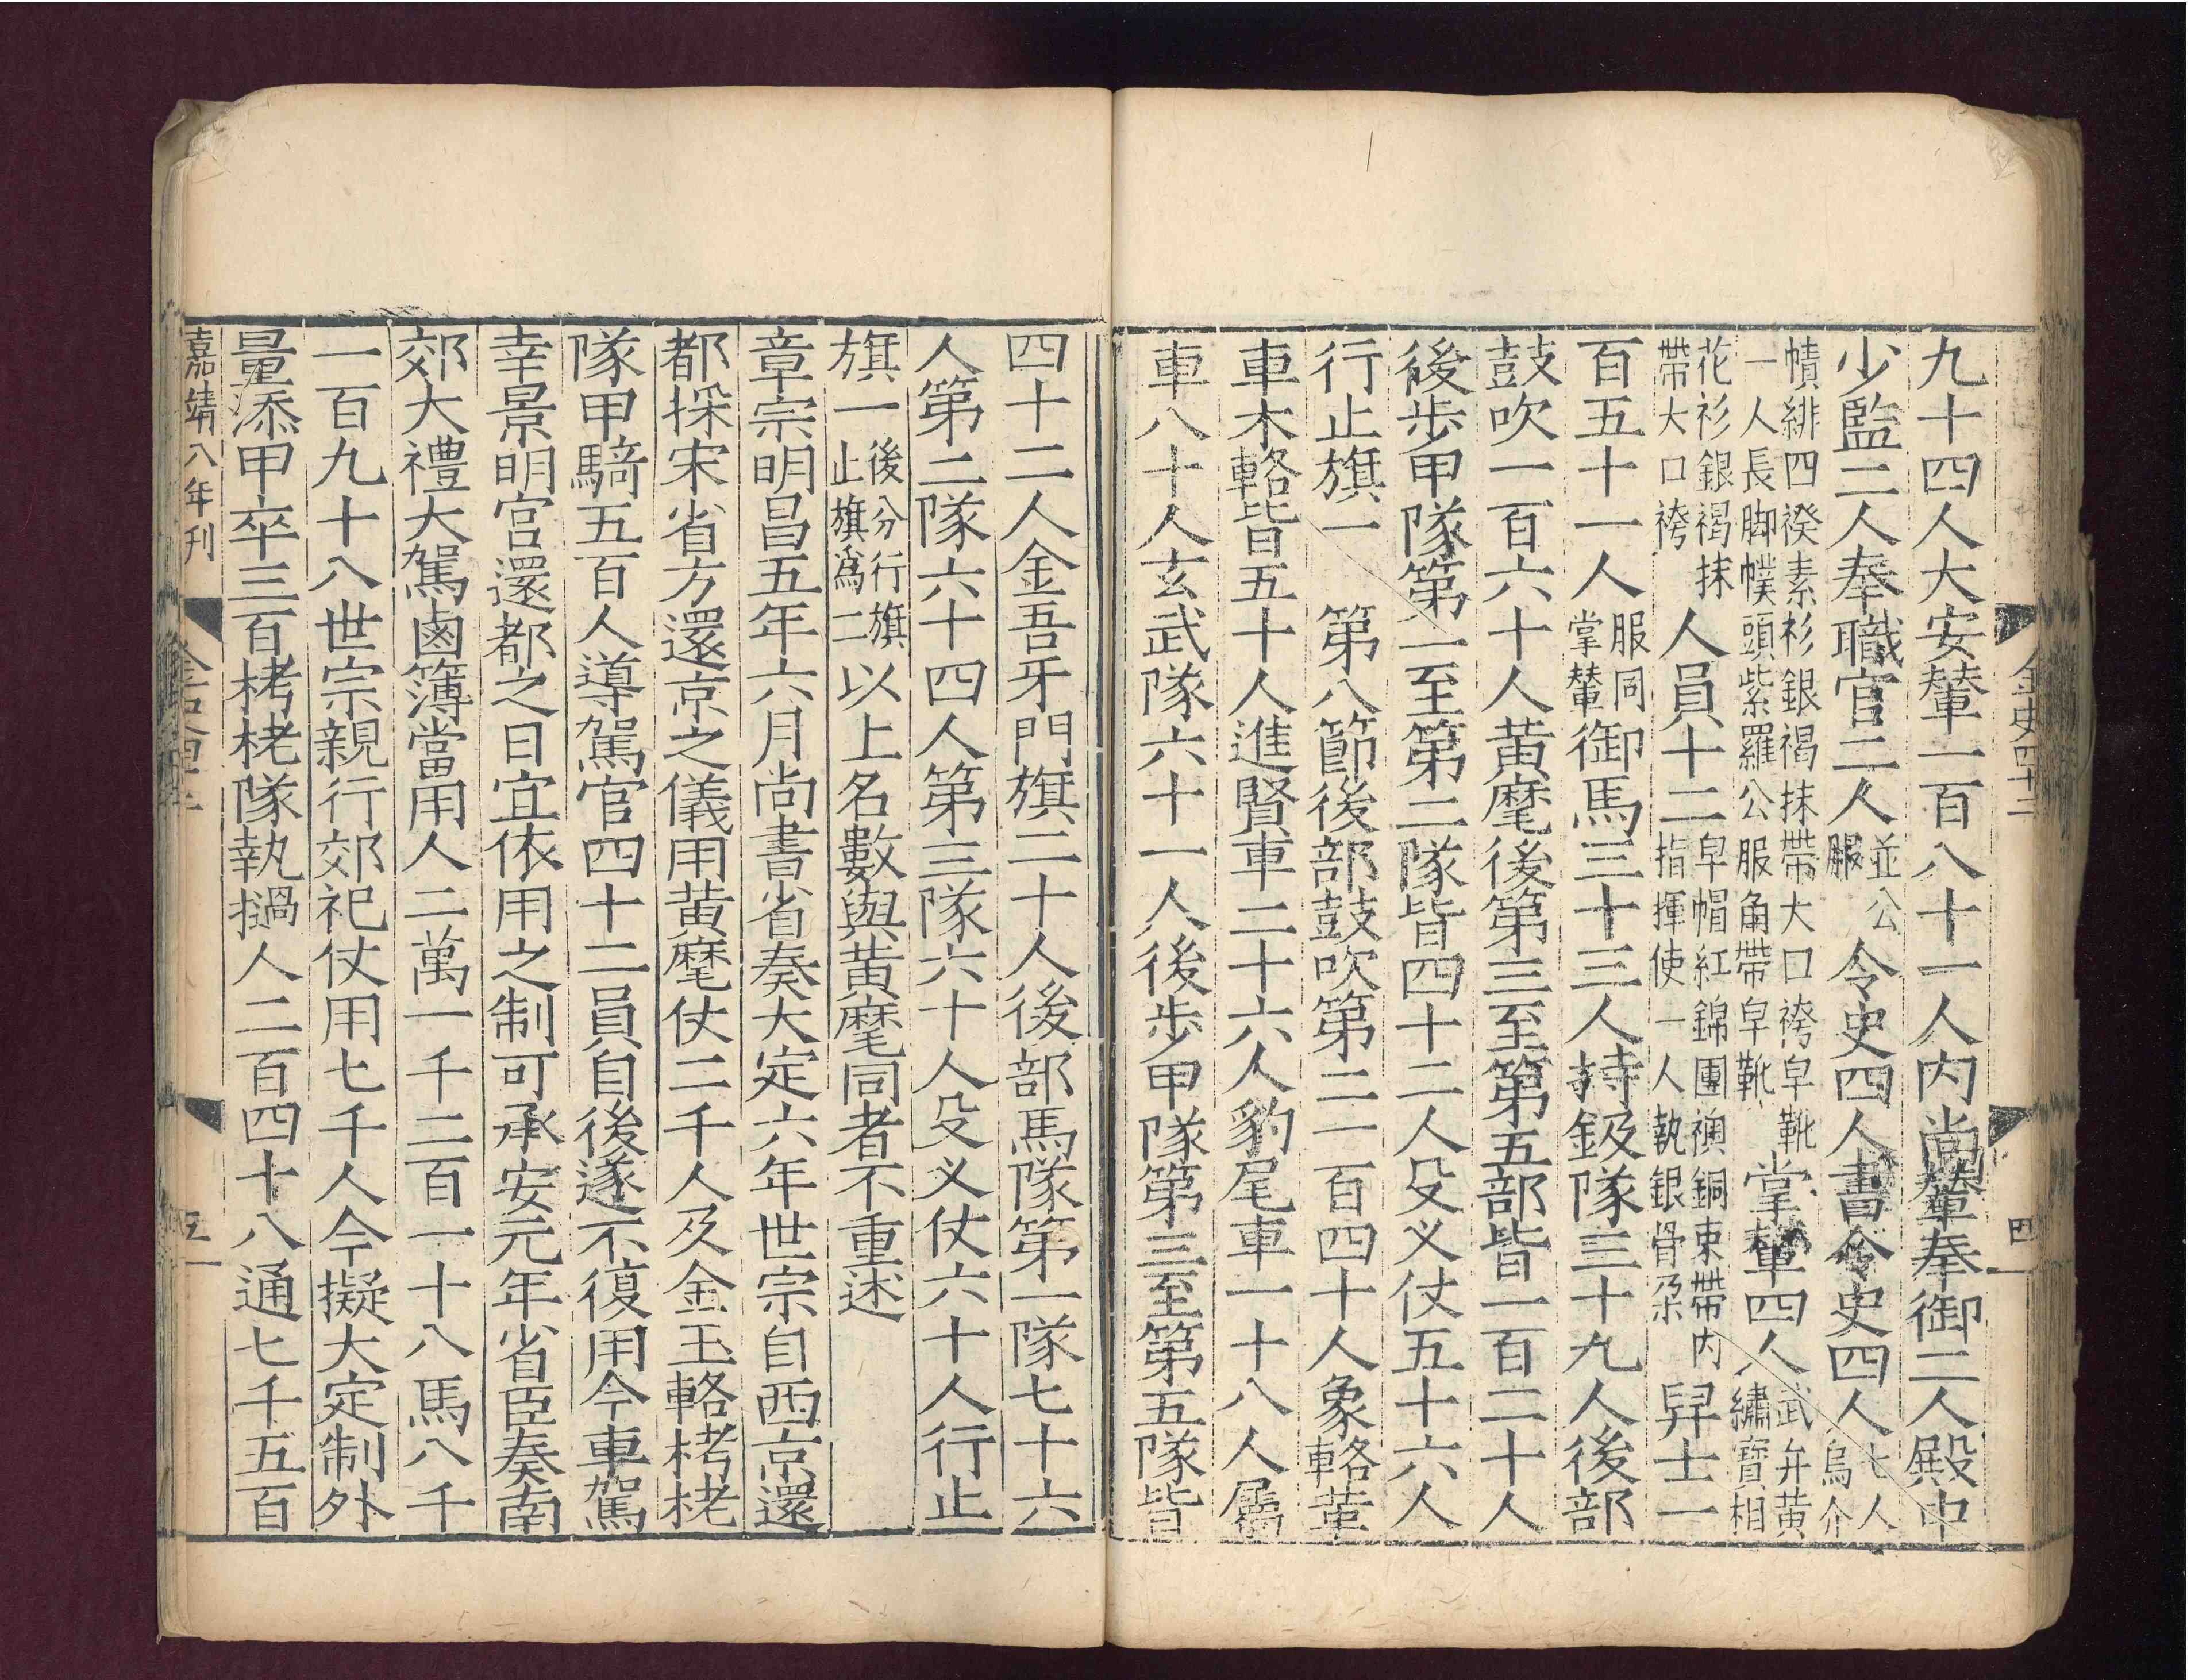 金史四十二
四
九十四人大安輦一百八十一人内尚輦奉御二人殿中
少監二人奉職官二人並公服令史四人書令史四人七人烏介
幘緋四䙆素衫銀褐抹帶大口袴皁靴
一人長脚幞頭紫羅公服角帶皁靴掌輦四人武弁黃繡寶相
花衫銀褐抹帶大口袴人員十二皁帽紅錦團襖銅束帶内指揮使一人執銀骨朶舁士一
百五十一人服同掌輦御馬三十三人持鈒隊三十九人後部
鼓吹一百六十人黃麾後第三至第五部皆一百二十人
後步甲隊第一至第二隊皆四十二人殳义仗五十六人
行止旗一　第八節後部鼓吹第二一百四十人象輅革
車木輅皆五十人進賢車二十六人豹尾車一十八人屬
車八十人玄武隊六十一人後步甲隊第三至第五隊皆
四十二人金吾牙門旗二十人後部馬隊第一隊七十六
人第二隊六十四人第三隊六十人殳义仗六十人行止
旗一後分行旗止旗爲二以上名數與黃麾同者不重述
章宗明昌五年六月尚書省奏大定六年世宗自西京還
都採宋省方還京之儀用黃麾仗二千人及金玉輅栲栳
隊甲騎五百人導駕官四十二員自後遂不復用今車駕
幸景明宮還都之日宜依用之制可承安元年省臣奏南
郊大禮大駕鹵簿當用人二萬一千二百一十八馬八千
一百九十八世宗親行郊祀仗用七千人今擬大定制外
量添甲卒三百栲栳隊執撾人二百四十八通七千五百
嘉靖八年刊
五